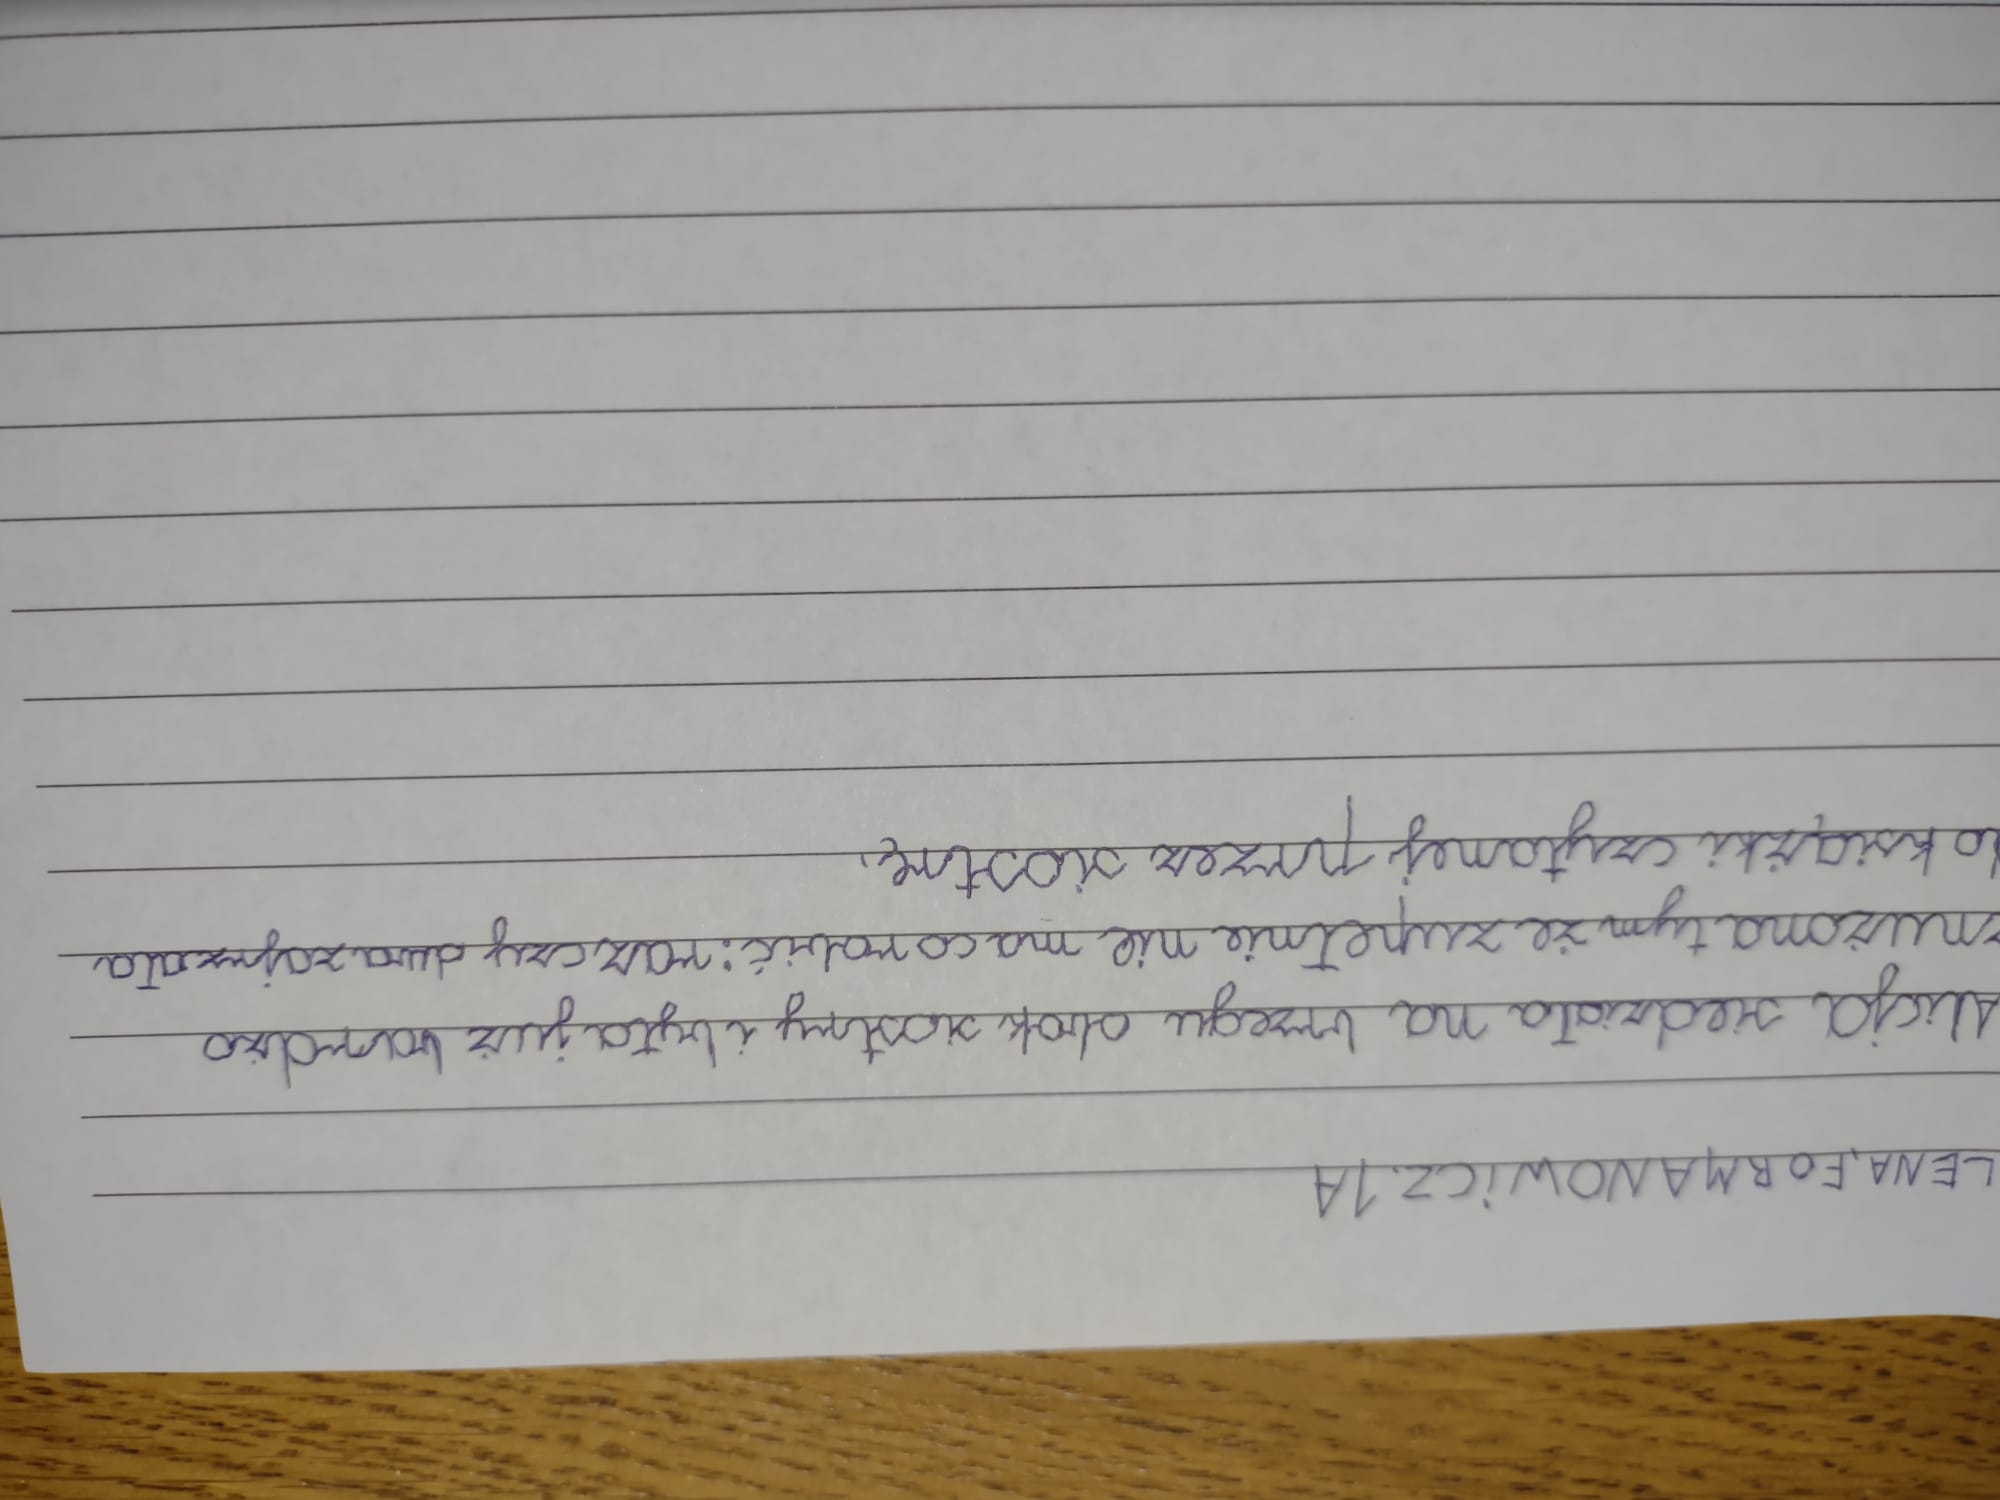 LENA.FORMANOWiCZ. 1A
Alicja siedziała na brzegu obok siostry i była już bardżo
znużona tym że zupełnie nie ma co robić: raz czy dwa zajrzała
do książki czytanej przez siostrę.